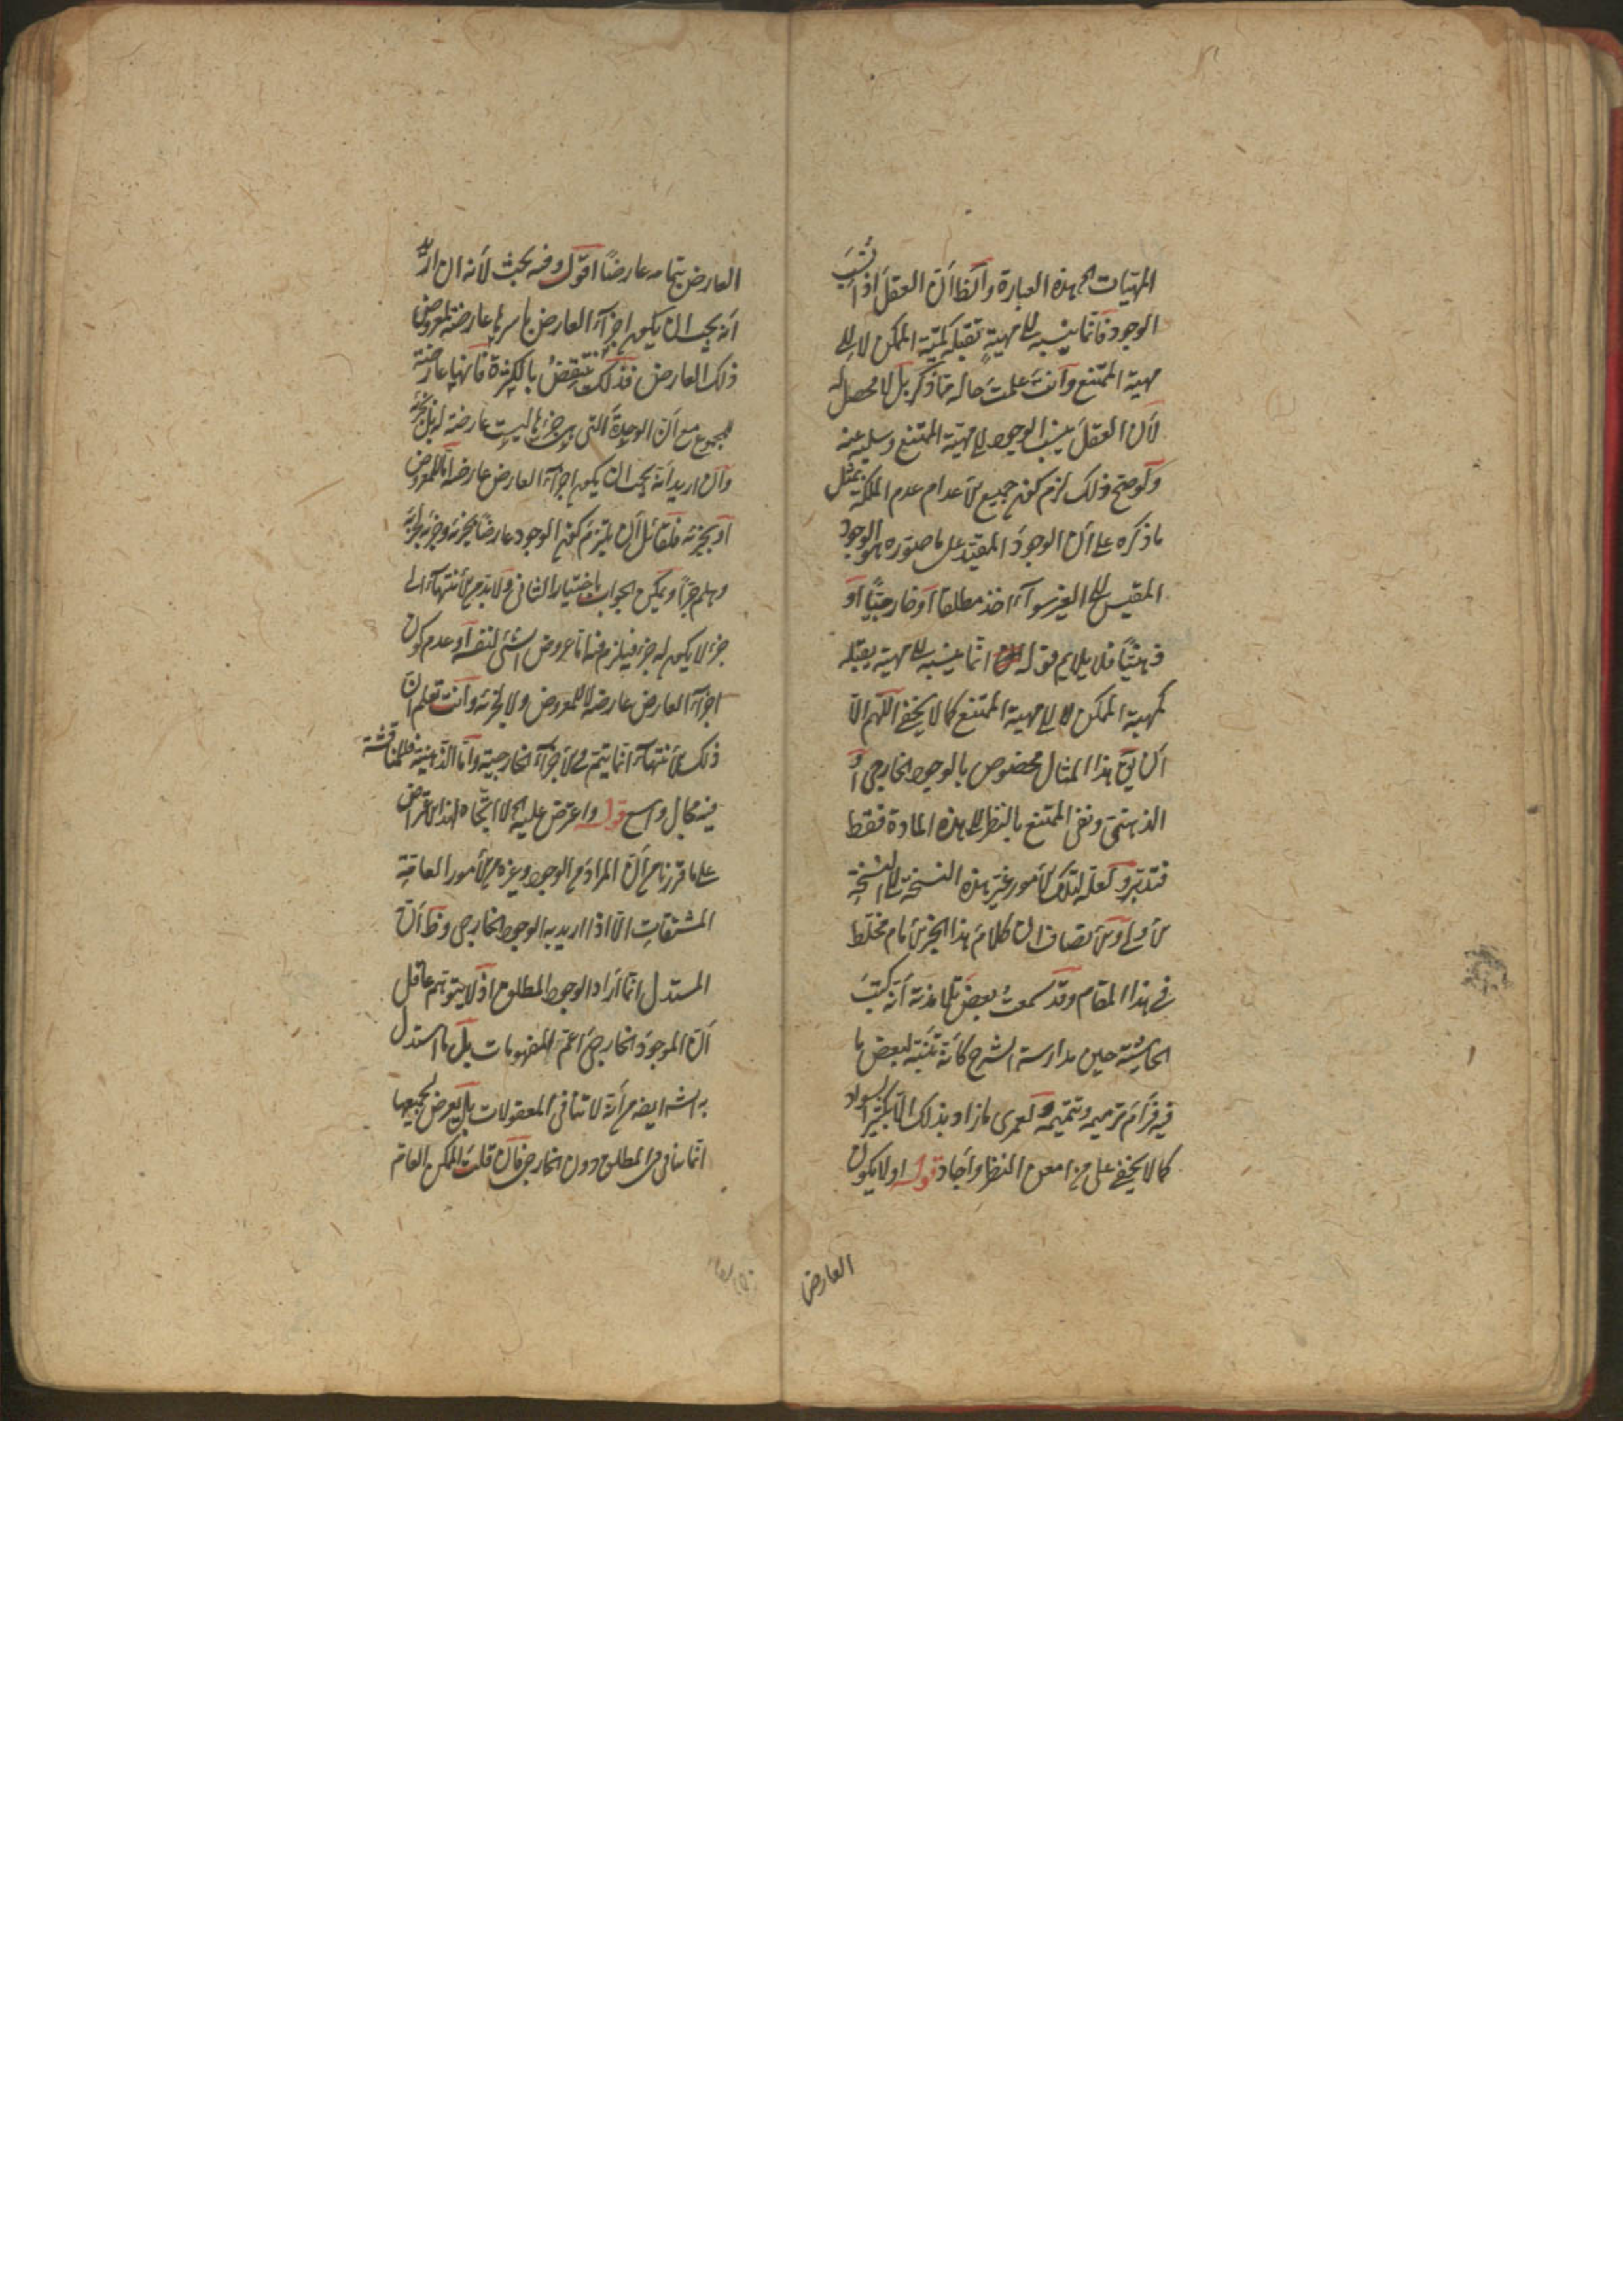 المهيات الخ هذه العبارة والظ أن العقل اذا نسب
الوجود فانما ينسبه الى مهية تقبله كمهية الممكن لا الى
مهية الممتنع وأنت علمت حاله مما ذكر بل لا محصل له
لأن العقل ينسب الوجود الى مهية الممتنع وسلبه عنه
ولو صح ذلك لزم كون جميع الأعدام عدم الملكة بمثل
ما ذكره على أن الوجود المقيد على ما صوره هو الوجود
المقيس الى الغير سواء اخذ مطلقا أو خارجيا أو
ذهنيا فلا يلايم قوله انما ينسبه الى مهية يقبله
كمهية الممكن لا الى مهية الممتنع كما لا يخفى اللهم الا
أن يق هذا المثال مخصوص بالوجود الخارجي أو
الذهني ونفي الممتنع بالنظر الى هذه المادة فقط
فتدبر ولعله لتلك الأمور غير هذه النسخة الى النسخة
الأولى والأنصاف ان كلام هذا الحبر الأمام مختلط
في هذا المقام وقد سمعت بعض تلامذته أنه كتب
الحاشية حين مدارسة الشرح كأنه تنبه لبعض ما
فيه فرام ترميمه وتتميمه ولعمرى ما زاد بذلك الا تكثير السواد
كما لا يخفى على من امعن النظر وأجاد قوله اولا يكون
العارض
العارض بتمامه عارضا اقول وفيه بحث لأنه ان اريد
أنه يجب ان يكون اجزاء العارض باسرها عارضة لمعروض
ذلك العارض فذلك منتقض بالكثرة فانها عارضة
للمجموع مع أن الوحدة التي هي جزءها ليست عارضة له بل لجزئه
وان اريد أنه يجب ان يكون اجزاء العارض عارضة اما للمعروض
أو لجزئه فلقائل أن يلتزم كون الوجود عارضا لجزئه وجزئه لجزئه
وهلم جرا ويمكن الجواب باختيار الثاني ولا بد من الأنتهاء الى
جزء لا يكون له جزء فيلزم فيه اما عروض الشئ لنفسه أو عدم كون
اجزاء العارض عارضة لا للمعروض ولا لجزئه وأنت تعلم ان
ذلك الأنتهاء انما يتم في الأجزاء الخارجية وأما الذهنية فللمناقشة
فيه مجال واسع قوله واعترض عليه الخ لا اتجاه لهذا الأعتراض
على ما قررنا من أن المراد من الوجود وغيره من الأمور العامة
المشتقات الا اذا اريد به الوجود الخارجي وظ أن
المستدل انما أراد الوجود المطلق اذ لا يتوهم عاقل
أن الموجود الخارجي اعم المفهومات بل ما استدل
به الش ايضه من أنه لا تنافي المعقولات بل يعرض لجميعها
انما يتأتى في المطلق دون الخارجي فان قلت الممكن العام